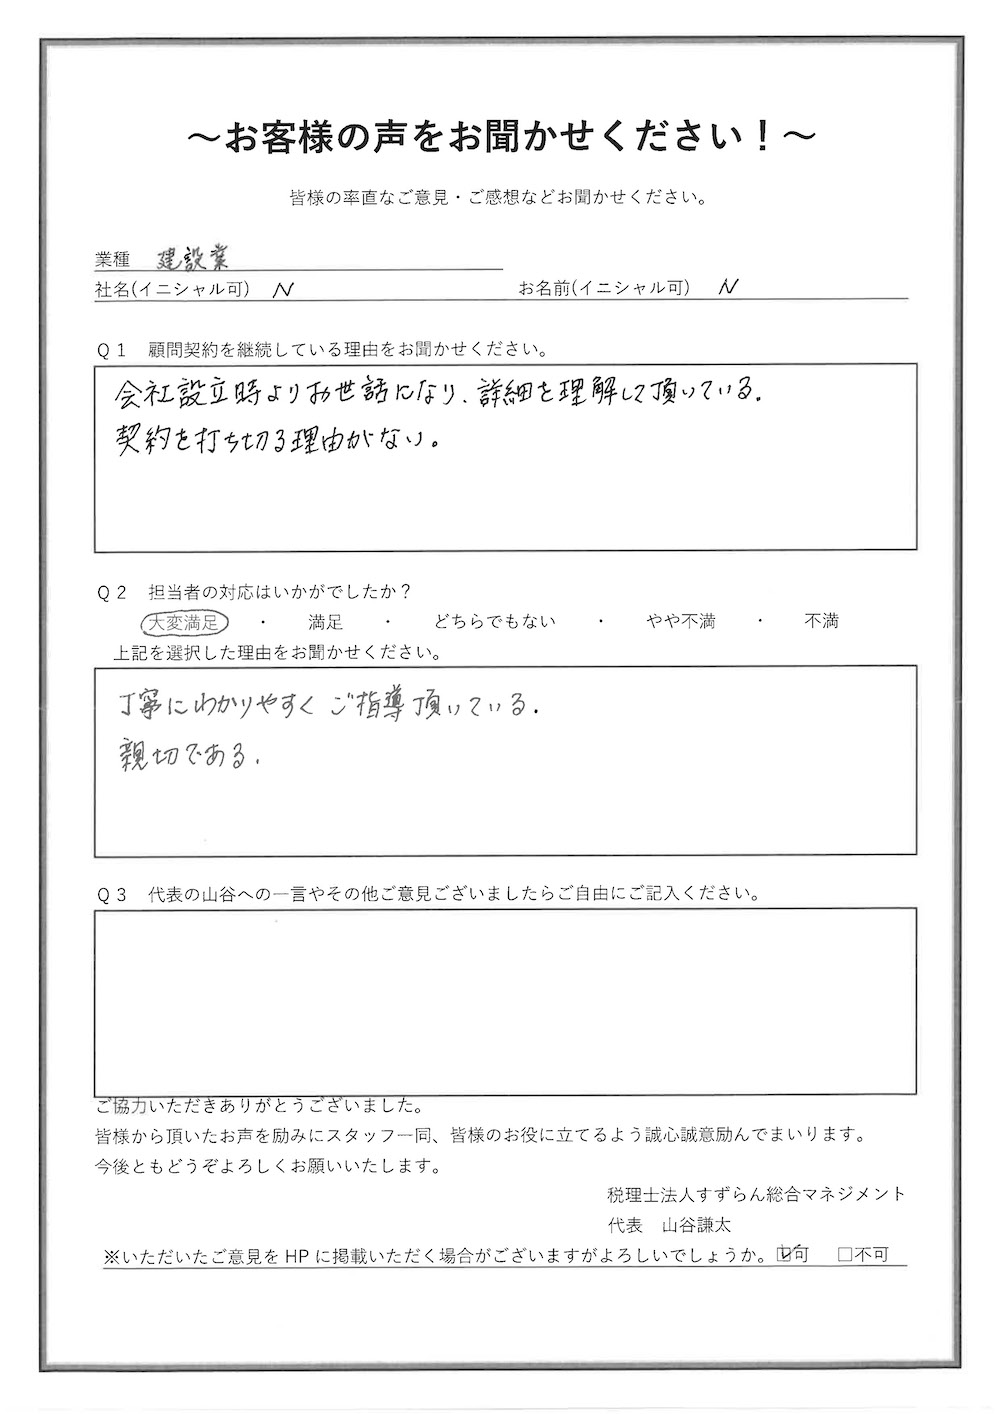 ～お客様の声をお聞かせください！～
皆様の率直なご意見・ご感想などお聞かせください。
業種　建設業
社名(イニシャル可)　N　お名前(イニシャル可)　N
Q1　顧問契約を継続している理由をお聞かせください。
会社設立時よりお世話になり、詳細を理解して頂いている.
契約を打ち切る理由がない。
Q2　担当者の対応はいかがでしたか？
大変満足　・　満足　・　どちらでもない　・　やや不満　・　不満
上記を選択した理由をお聞かせください。
丁寧にわかりやすくご指導頂いている.
親切である.
Q3　代表の山谷への一言やその他ご意見ございましたらご自由にご記入ください。
ご協力いただきありがとうございました。
皆様から頂いたお声を励みにスタッフ一同、皆様のお役に立てるよう誠心誠意励んでまいります。
今後ともどうぞよろしくお願いいたします。
税理士法人すずらん総合マネジメント
代表　山谷謙太
※いただいたご意見をHPに掲載いただく場合がございますがよろしいでしょうか。☑可　□不可